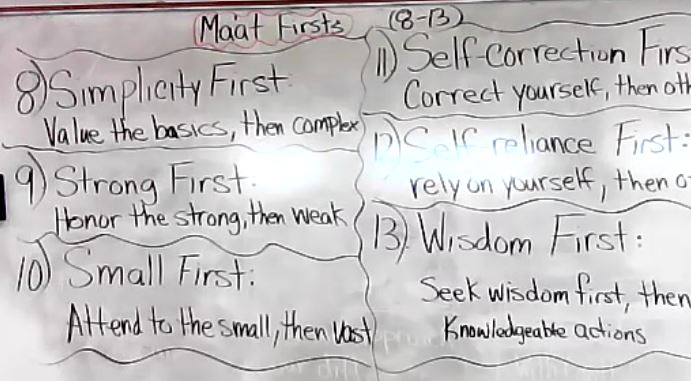 Maat Firsts (8-13)
8) Simplicity First
Value the basics, then complex
9) Strong First.
Honor the strong, then weak
10) Small First:
Attend to the small, then vast
11) Self-Correction Firs
Correct yourself, then oth
12) Self reliance First:
rely on yourself, then o
13) Wisdom First:
Seek wisdom first, then
Knowledgeable actions